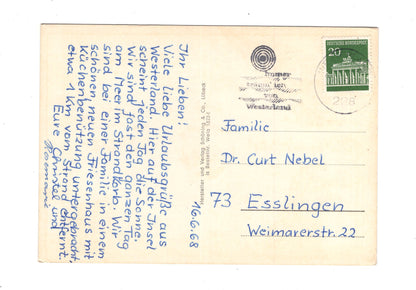 16.6.68
Ihr Lieben!
Viele liebe Urlaubsgrüße aus
Westerland. Hier auf der Insel
scheint jeden Tag die Sonne.
Wir sind fast den ganzen Tag
am Meer im Strandkorb. Wir
sind bei einer Familie in einem
schönen, neuen Friesenhaus mit
Küchenbenützung untergebracht,
etwa 1 km vom Strand entfernt.
Eure Christel und
Hosemarie
Hersteller und Verlag Schöning & Co., Lübeck
20
DEUTSCHE BUNDESPOST
immer
Westerland
Familie
Dr. Curt Nebel
73 Esslingen
Weimarerstr. 22